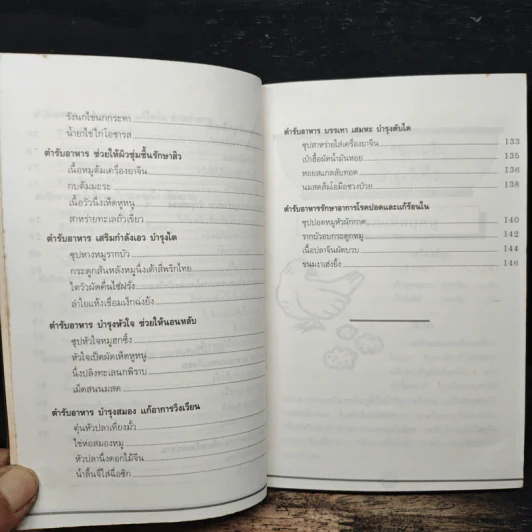 รังนกไข่นกกระทา
น้ำยาไข่ไก่โอชารส
ตำรับอาหาร ช่วยให้ผิวชุ่มชื้นรักษาสิว
เนื้อหมูต้มเครื่องยาจีน
กบต้มมะระ
เนื้อวัวนึ่งเห็ดหูหนู
สาหร่ายทะเลถั่วเขียว
ตำรับอาหาร เสริมกำลังเอว บำรุงไต
ซุปหางหมูรากบัว
กระดูกสันหลังหมูนึ่งเต้าสี่พริกไทย
ไตวัวผัดคื่นไช่ฝรั่ง
ลำไยแห้งเชื่อมเง็กฉ่งย้ง
ตำรับอาหาร บำรุงหัวใจ ช่วยให้นอนหลับ
ซุปหัวใจหมูฮกซิ้ง
หัวใจเป็ดผัดเห็ดหูหนู
นึ่งปลิงทะเลนกพิราบ
เม็ดสนนมสด
ตำรับอาหาร บำรุงสมอง แก้อาการวิงเวียน
ตุ๋นหัวปลาเทียงมั้ว
ไข่ห่อสมองหมู
หัวปลานึ่งดอกไม้จีน
น้ำลิ้นจี่ใส่ฉื่อซิก
ตำรับอาหาร บรรเทา เสมหะ บำรุงตับไต
ซุปสาหร่ายใส่เครื่องยาจีน 133
เป๋าฮื้อผัดน้ำมันหอย 135
หอยสแกลลับทอด 136
นมสดส้มโอมือช่วงป่วย 138
ตำรับอาหารรักษาอาการโรคปอดและแก้ร้อนใน
ซุปปอดหมูหัวผักกาด 140
รากบัวอบกระดูกหมู 142
เนื้อปลาจีนผัดบวบ 144
ขนมงาเฮ่งยิ้ง 146